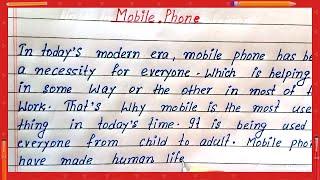 Mobile Phone
In today's modern era, mobile phone has be
a necessity for everyone. Which is helping
in some way or the other in most of t
work. That's why mobile is the most use
thing in today's time. It is being used
everyone from child to adult. Mobile phon
have made human life